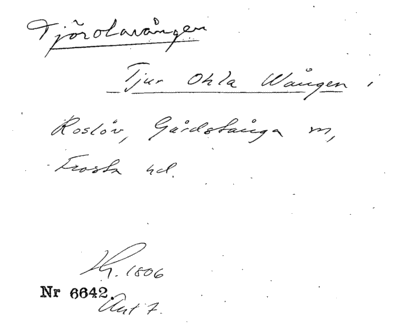 Tjörolavången
Tjur Ohla Wången i
Roslöv, Gårdstånga sn,
Frosta hd.
1806
Nr 6642.
Ant 7.